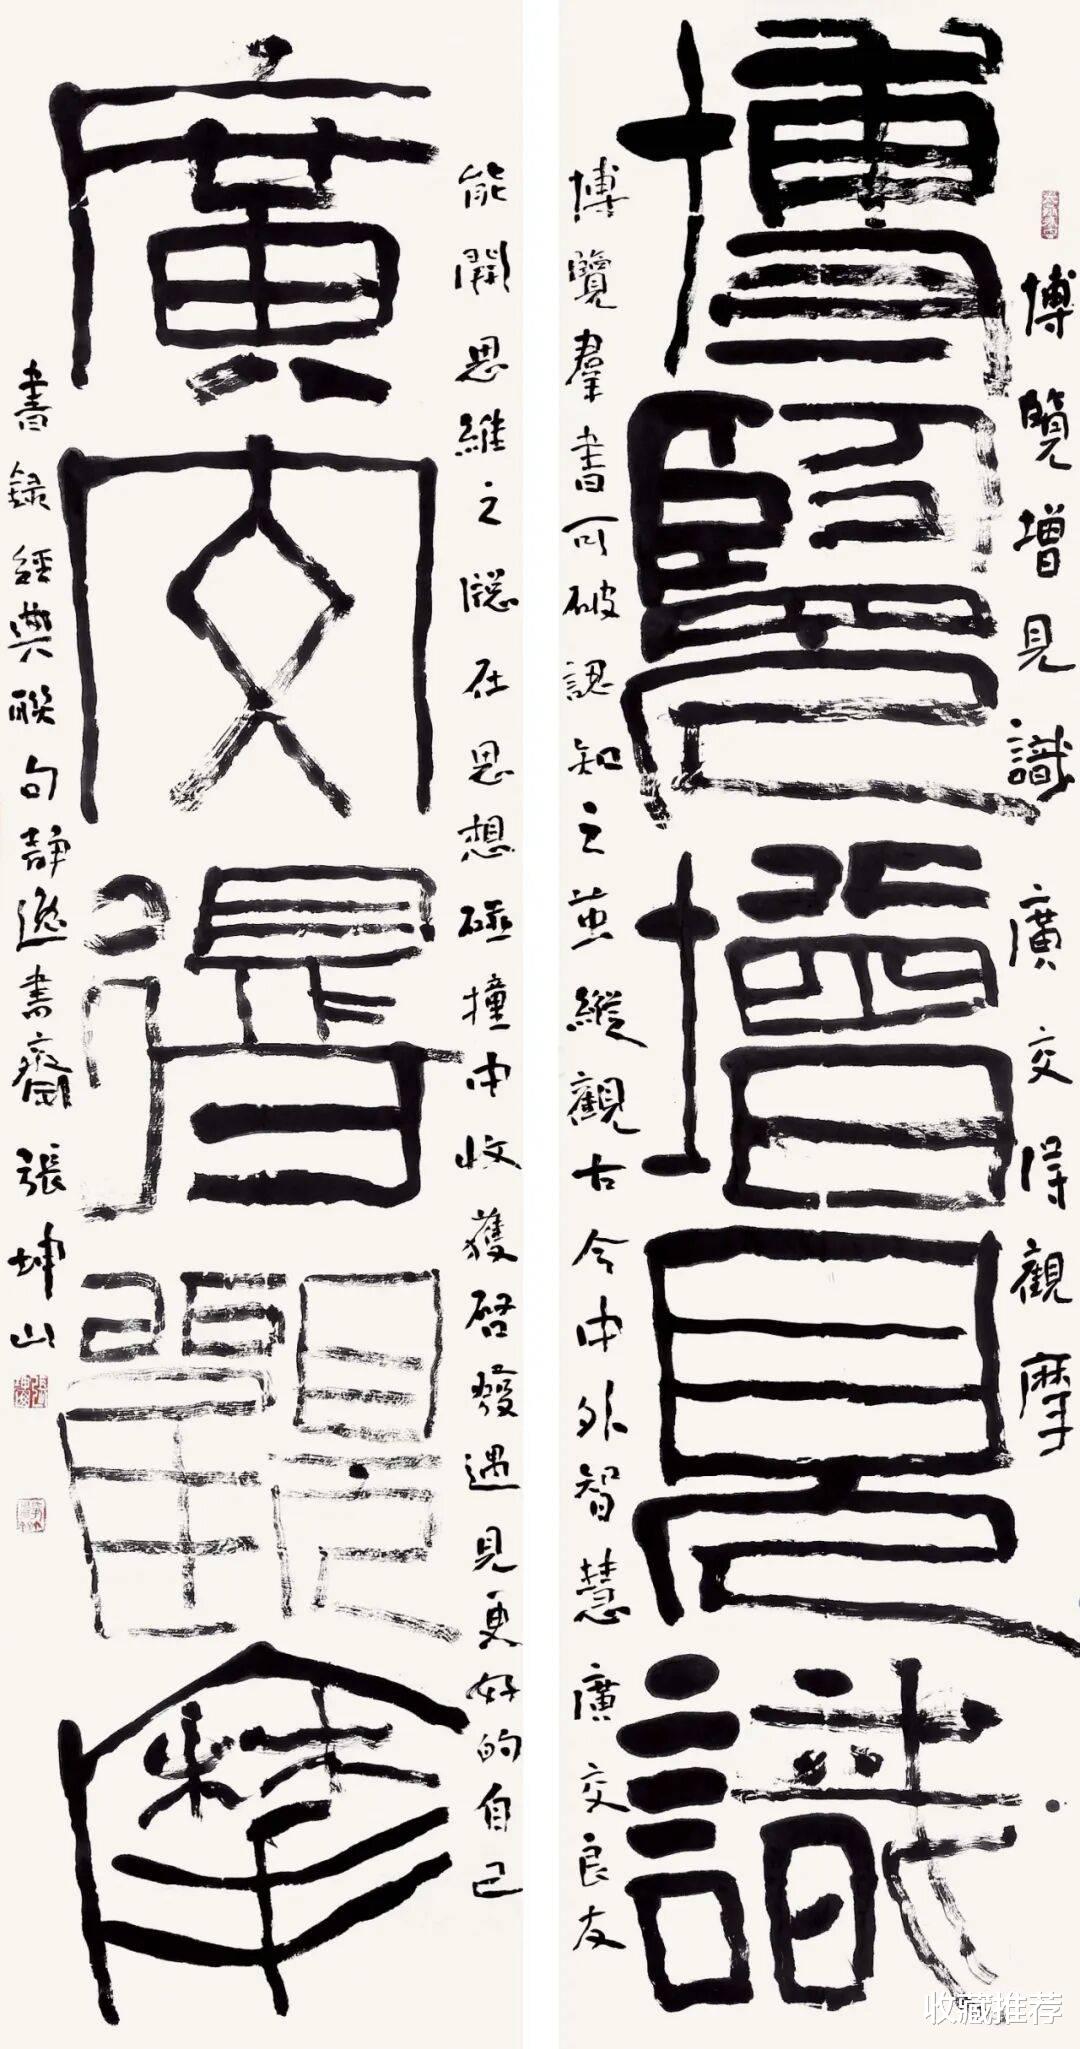 博覽增見識 廣交得觀摩
博覽增見識
博覽羣書可破認知之繭縱觀古今中外智慧廣交良友
能開思維之牕在思想碰撞中收獲啓發遇見更好的自己
廣交得觀摩
書録經典聯句静逸書齋張坤山
收藏推荐